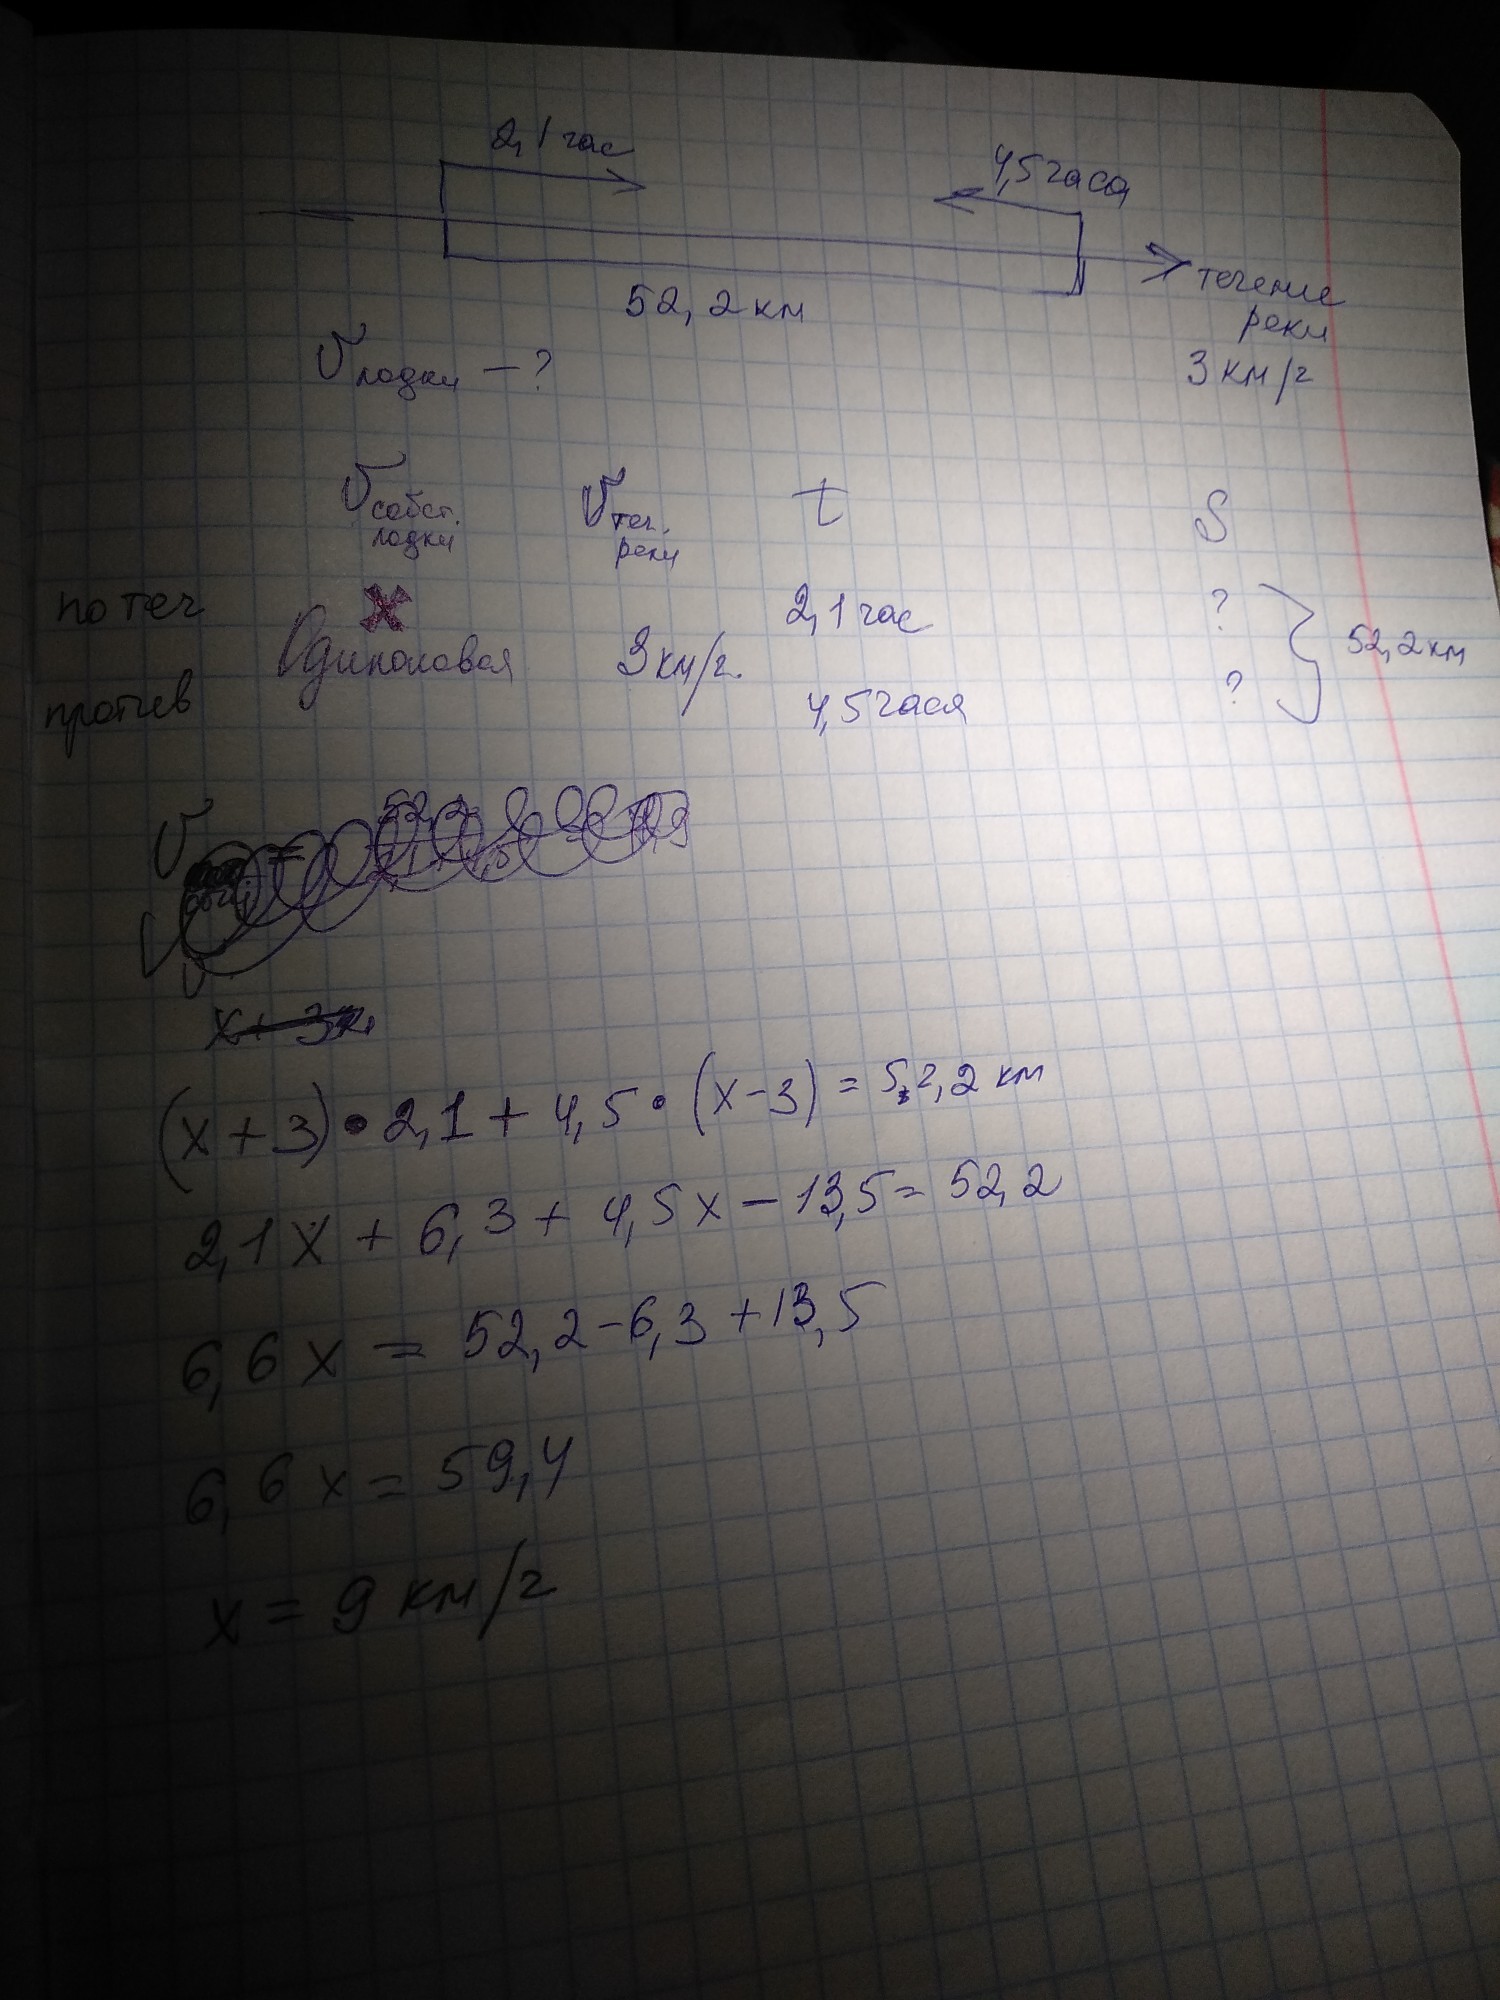 2,1 час
4,5 часа
52,2 км
течение
реки
3 км/ч
V лодки - ?
V собст. лодки V теч. реки t S
по теч X 2,1 час ?
Одинаковая 3 км/ч. 52,2 км
против 4,5 часа ?
V
x + 3
(x + 3) • 2,1 + 4,5 • (x - 3) = 52,2 км
2,1 x + 6,3 + 4,5 x - 13,5 = 52,2
6,6 x = 52,2 - 6,3 + 13,5
6,6 x = 59,4
x = 9 км/ч